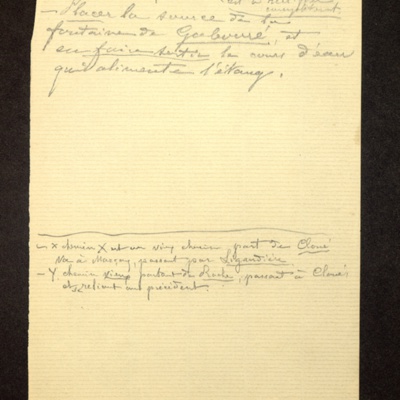 est
- Placer la source de la
fontaine de Gabouré, et
en faire sortir le cours d'eau
qui alimente l'étang.
- X chemin X est un vieux chemin, part de Cloué
va à Marçay, passant par
- Y chemin vieux partant de Roche, passant à Cloué
et se reliant au précédent.